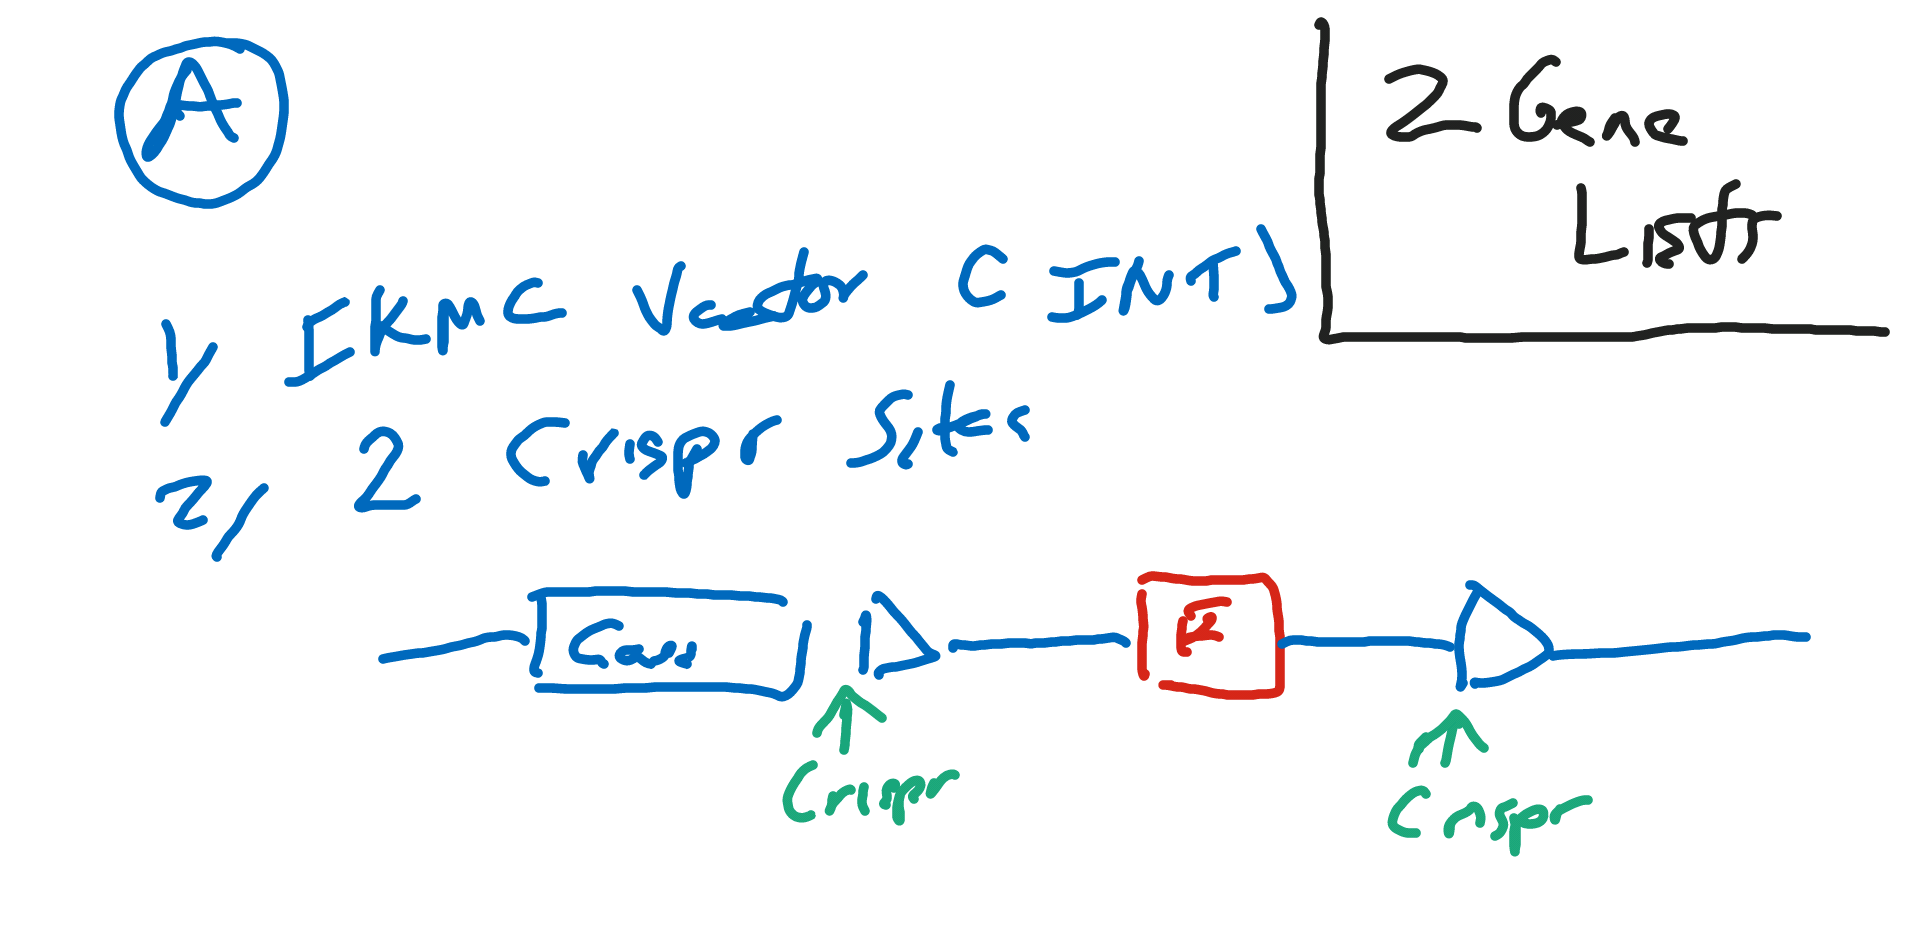 A
2 Gene
Lists
1) IKMC Vector (INT)
2) 2 Crispr Sites
E
Crispr
Crispr